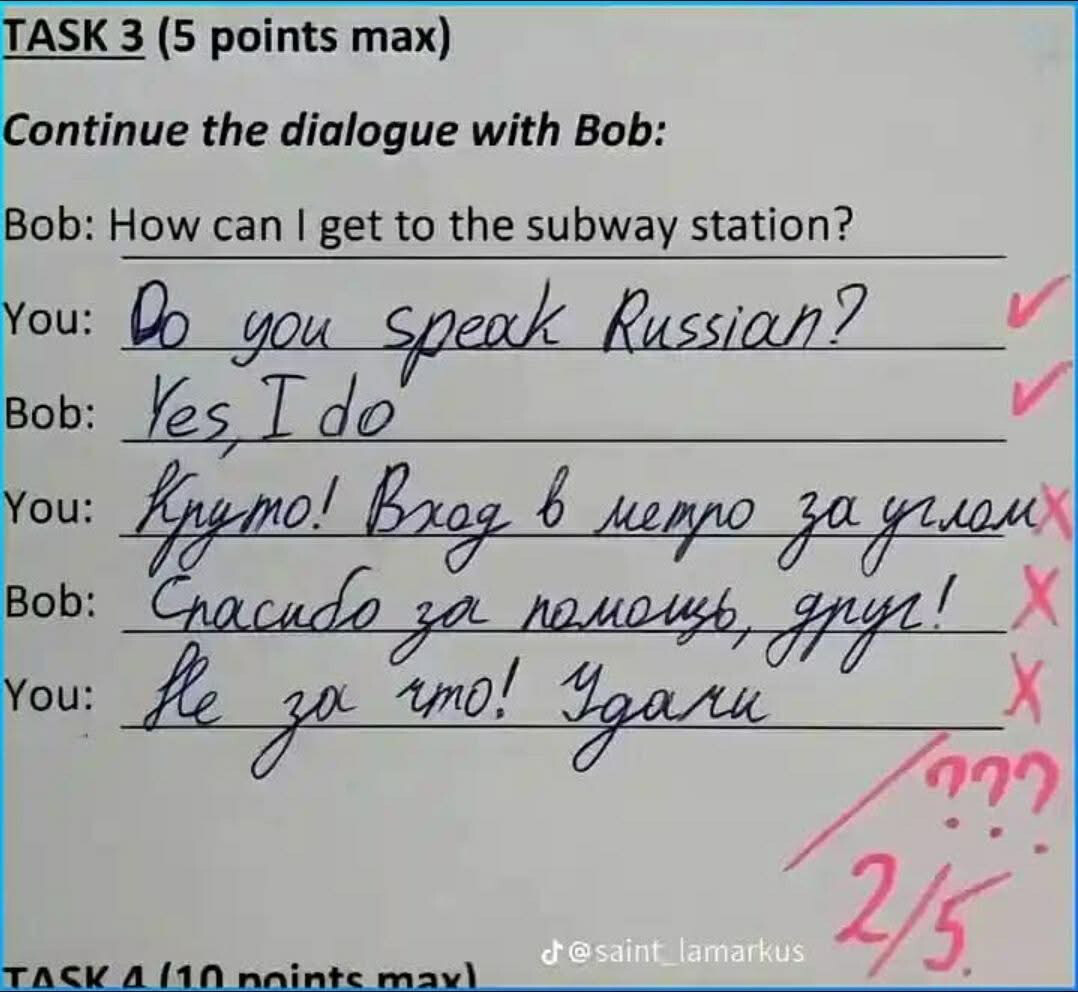 TASK 3 (5 points max)
Continue the dialogue with Bob:
Bob: How can I get to the subway station?
You: Do you speak Russian? ✓
Bob: Yes, I do ✓
You: Круто! Вход в метро за углом X
Bob: Спасибо за помощь, друг! X
You: Не за что! Удачи X
???
2/5.
@saint_lamarkus
TASK 4 (10 points max)